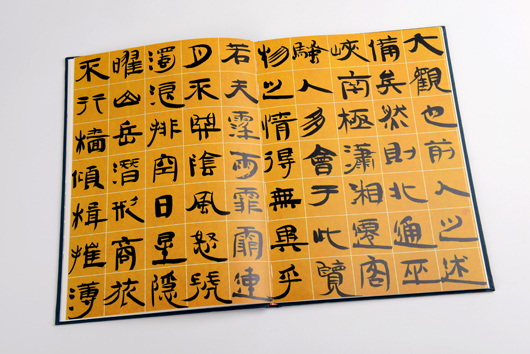 大觀也前人之述
備矣然則北通巫
峽南極瀟湘遷客
騷人多會于此覽
物之情得無異乎
若夫霪雨霏霏連
月不開陰風怒號
濁浪排空日星隱
曜山岳潛形商旅
不行檣傾楫摧薄